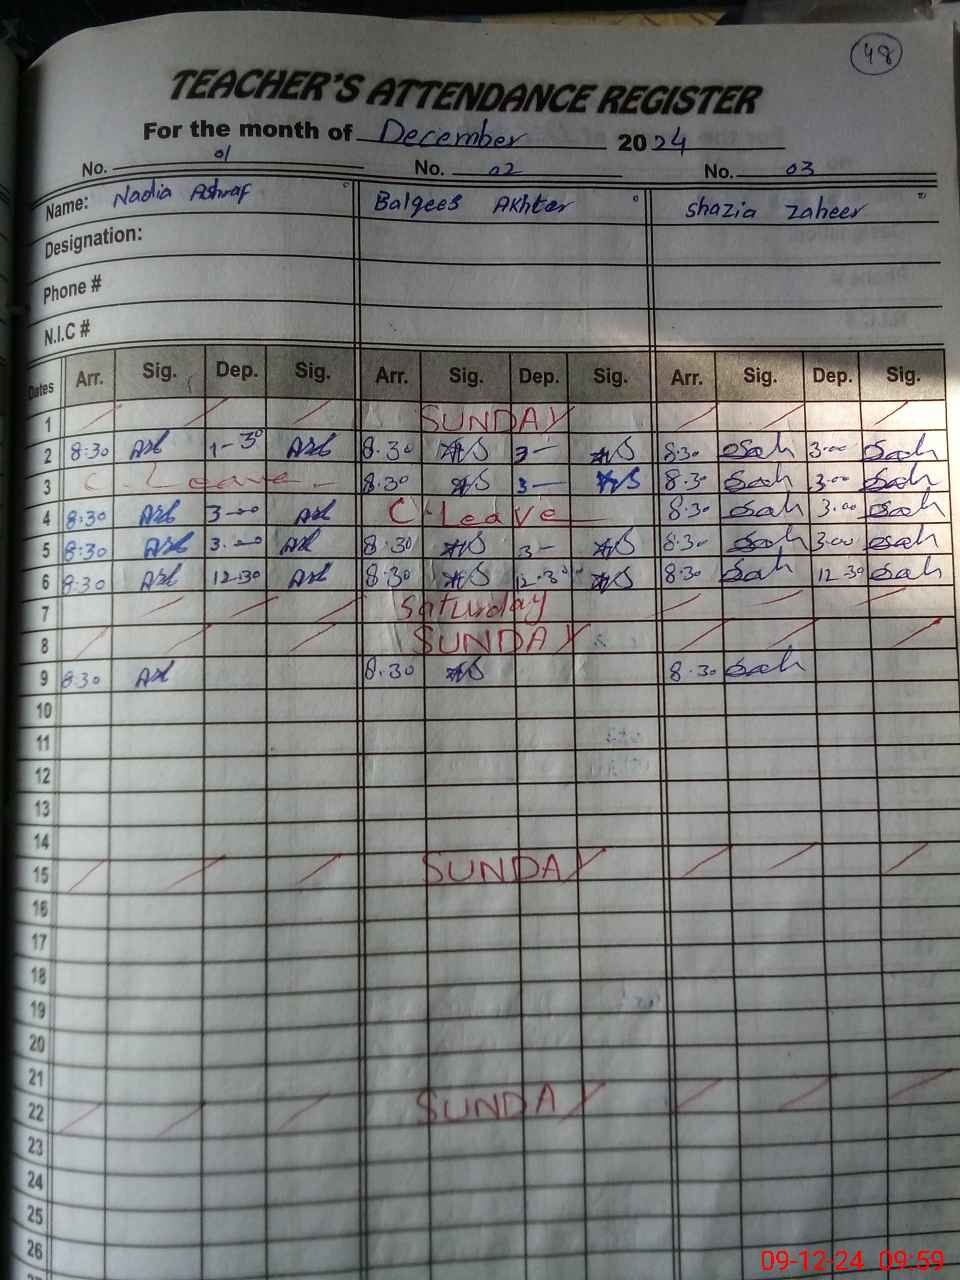 48
TEACHER'S ATTENDANCE REGISTER
For the month of December 2024
No. 01 No. 02 No. 03
Name: Nadia Ashraf Balqees Akhter Shazia Zaheer
Designation:
Phone #
N.I.C #
Dates Arr. Sig. Dep. Sig. Arr. Sig. Dep. Sig. Arr. Sig. Dep. Sig.
1 SUNDAY
2 8:30 1-30 8.30 3- 8.30 3.00
3 C. Leave 8.30 3- 8.30 3.00
4 8:30 3-00 C Leave 8.30 3.00
5 8:30 3.00 8.30 3- 8.30 3.00
6 8:30 12-30 8.30 12.30 8.30 12.30
7 Saturday
8 SUNDAY
9 8.30 8.30 8.30
10
11
12
13
14
15 SUNDAY
16
17
18
19
20
21
22 SUNDAY
23
24
25
26
09-12-24 09:59